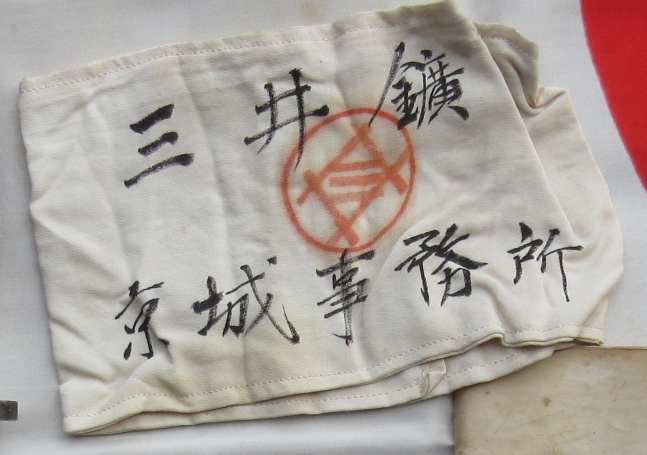 三井鑛
京城事務所